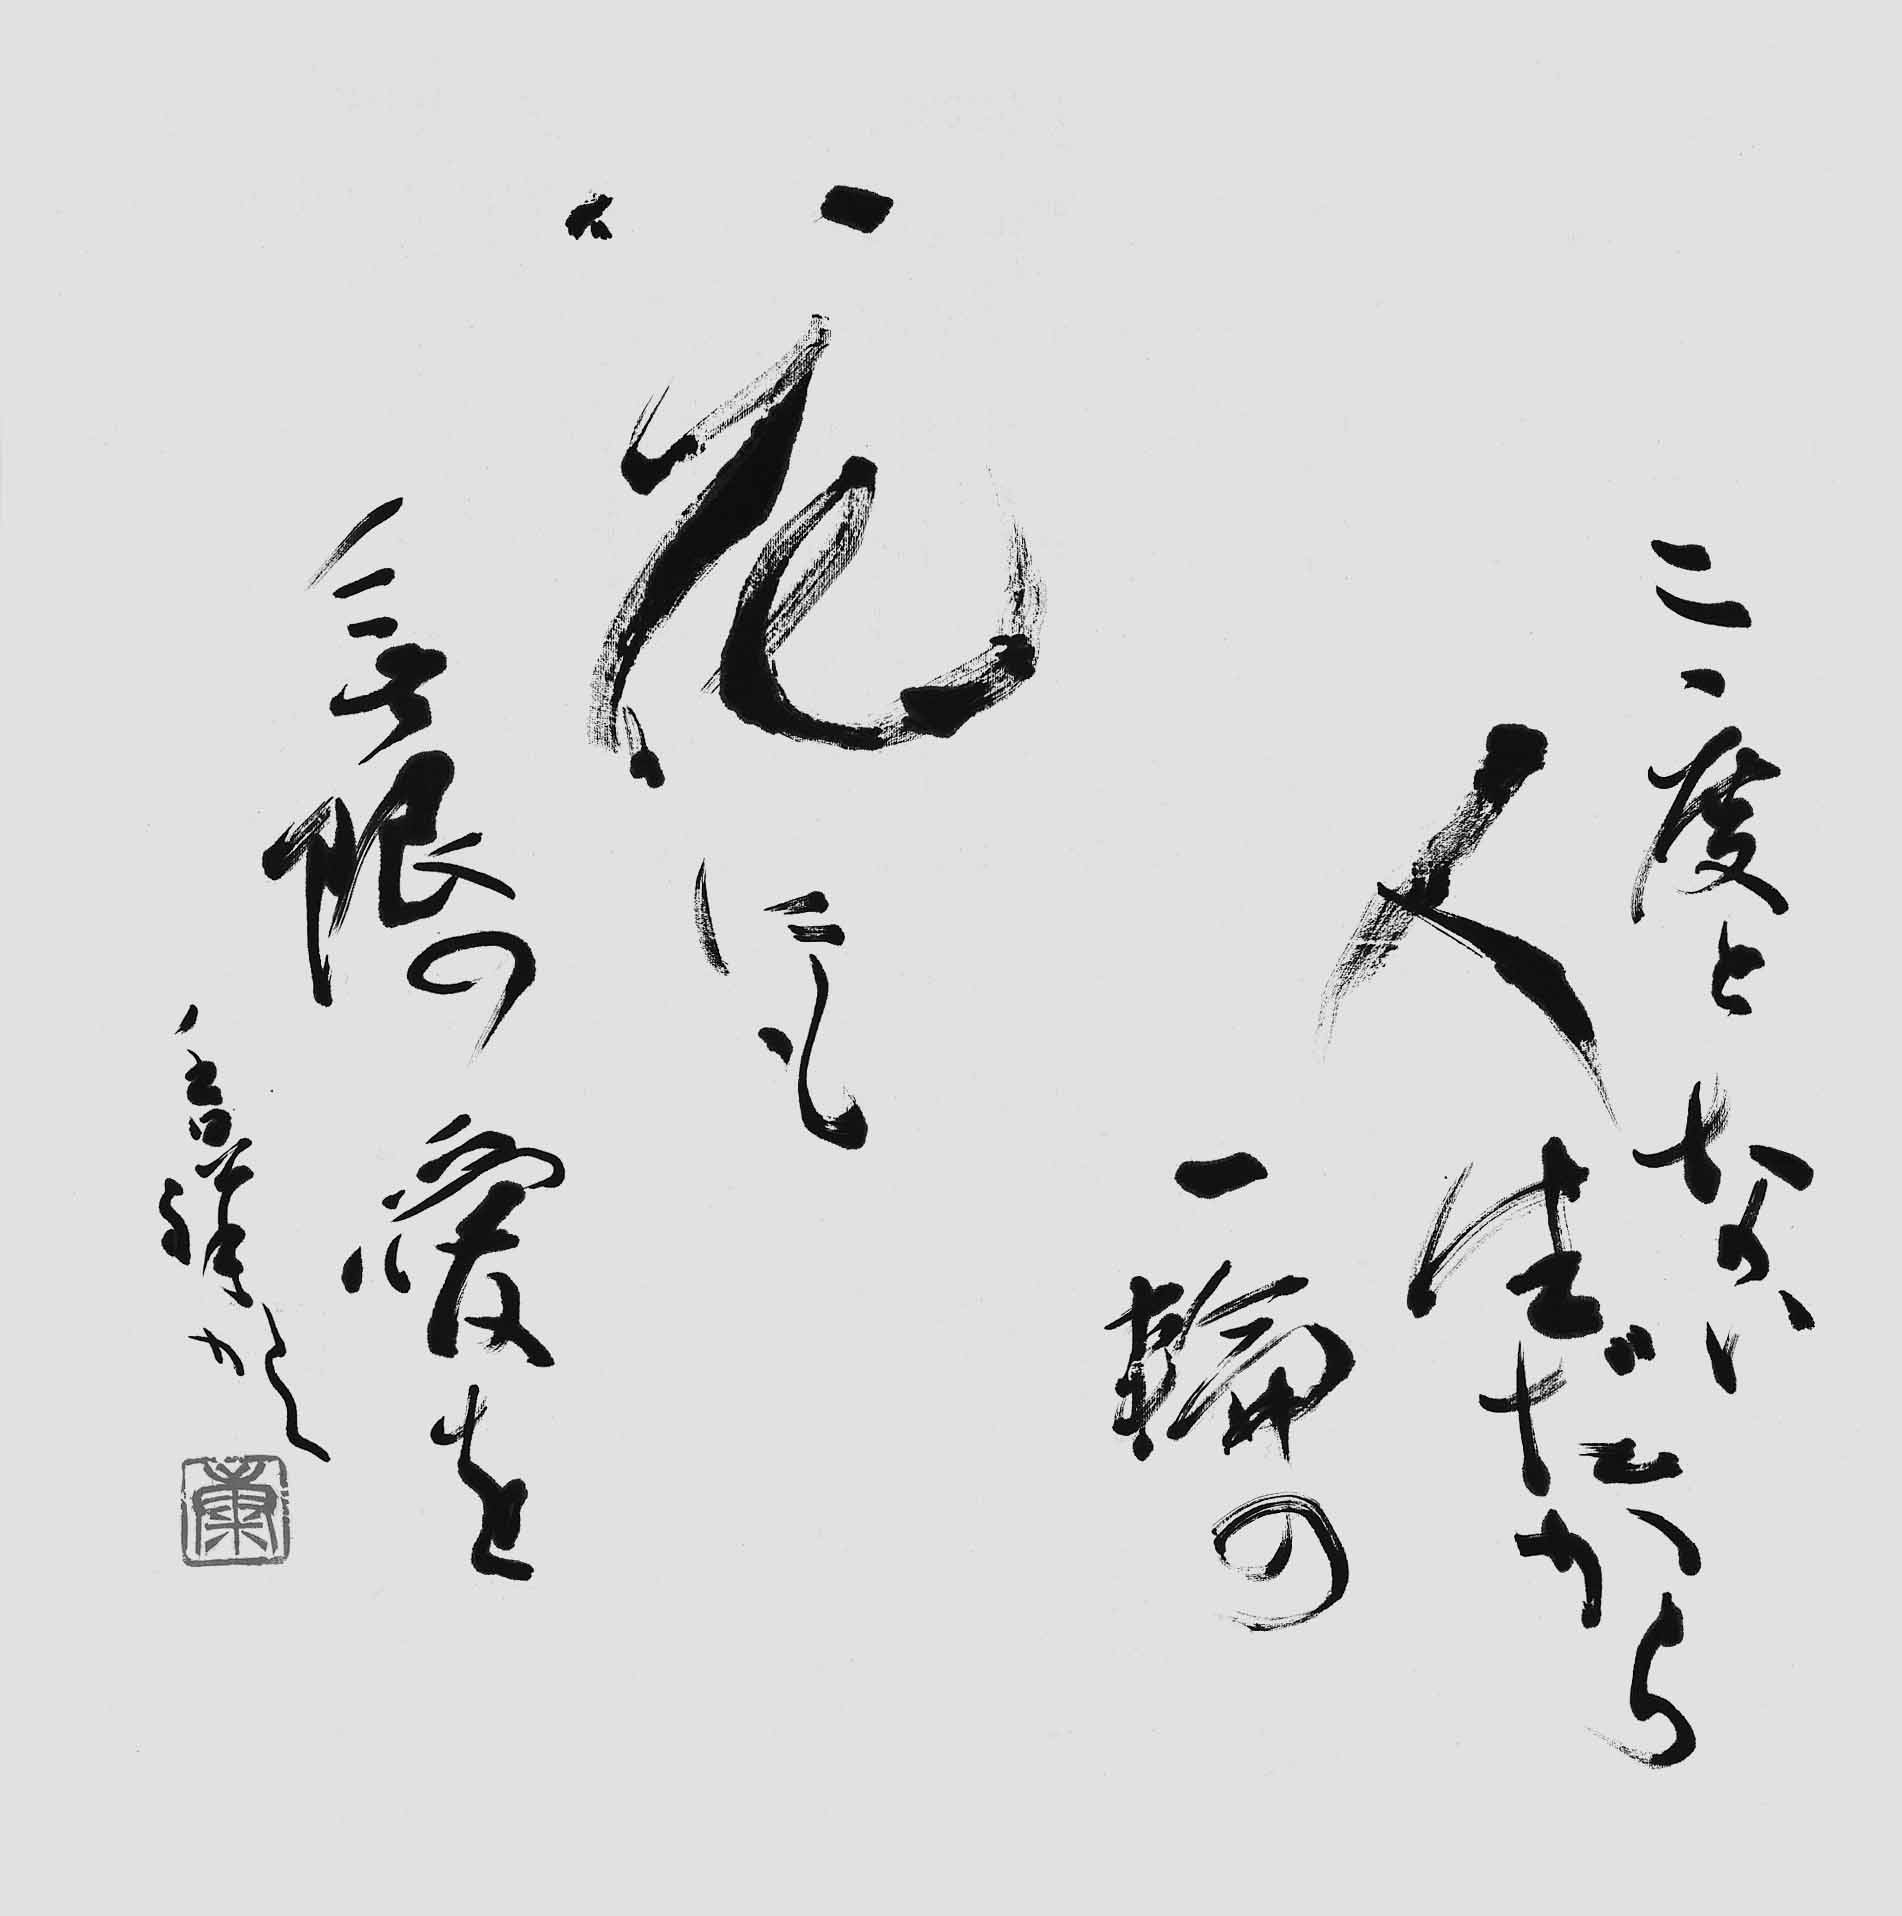 二度とない
人生だから
一輪の
花にも
無限の
愛を